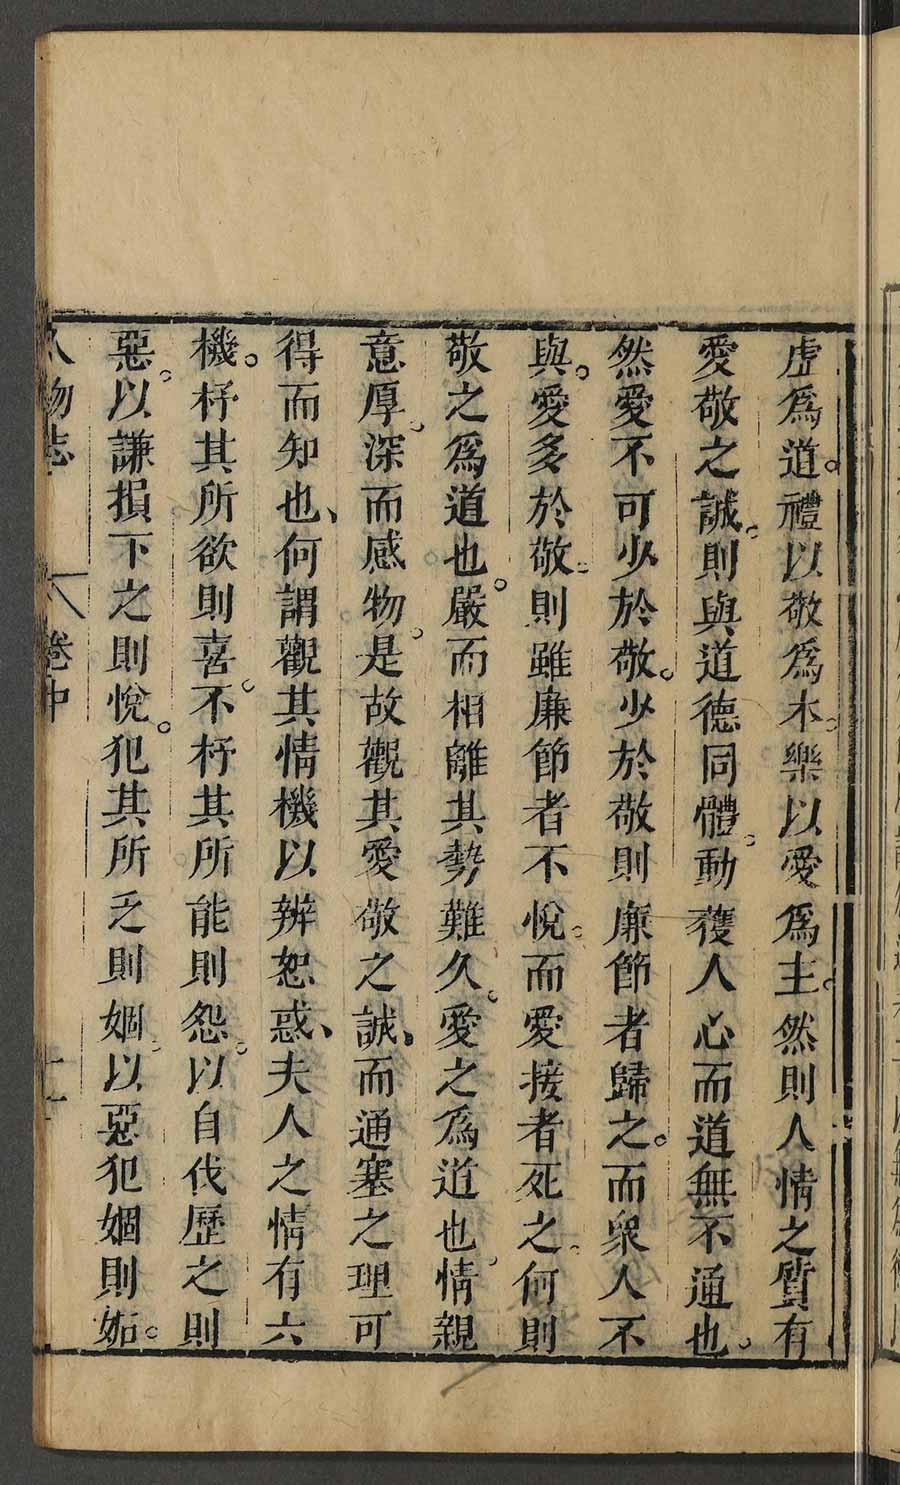 虛爲道禮以敬爲本樂以愛爲主然則人情之質有
愛敬之誠則與道德同體動獲人心而道無不通也
然愛不可少於敬少於敬則廉節者歸之而衆人不
與愛多於敬則雖廉節者不悅而愛接者死之何則
敬之爲道也嚴而相離其勢難久愛之爲道也情親
意厚深而感物是故觀其愛敬之誠而通塞之理可
得而知也何謂觀其情機以辨恕惑夫人之情有六
機杼其所欲則喜不杼其所能則怨以自伐歷之則
惡以謙損下之則悅犯其所乏則婟以惡犯婟則妬
人物志 卷中 十一